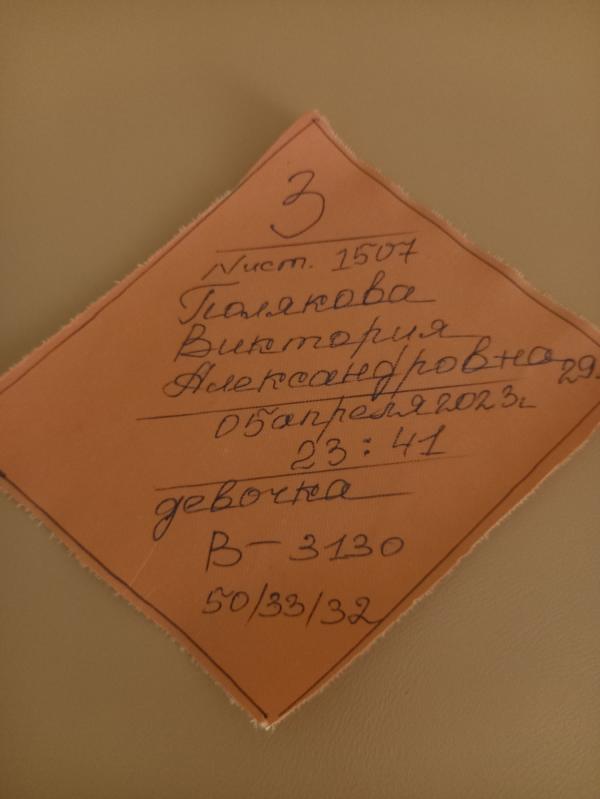 3
Nист. 1507
Полякова
Виктория
Александровна 29
05 апреля 2023г
23:41
девочка
В- 3130
50/33/32